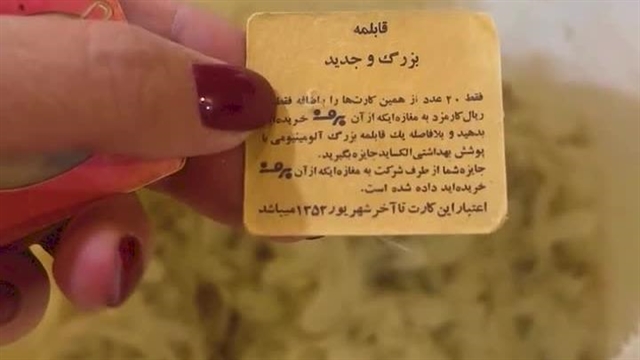 قابلمه
بزرگ و جدید
فقط ۲۰ عدد از همین کارت‌ها را باضافه فقط
ریال کارمزد به مغازه‌ایکه از آن برف خریده‌اید
بدهید و بلافاصله یك قابلمه بزرگ آلومینیومی با
پوشش بهداشتی الکساید جایزه بگیرید.
جایزه شما از طرف شرکت به مغازه ایکه از آن برف
خریده‌اید داده شده است.
اعتبار این کارت تا آخر شهریور ۱۳۵۳ میباشد